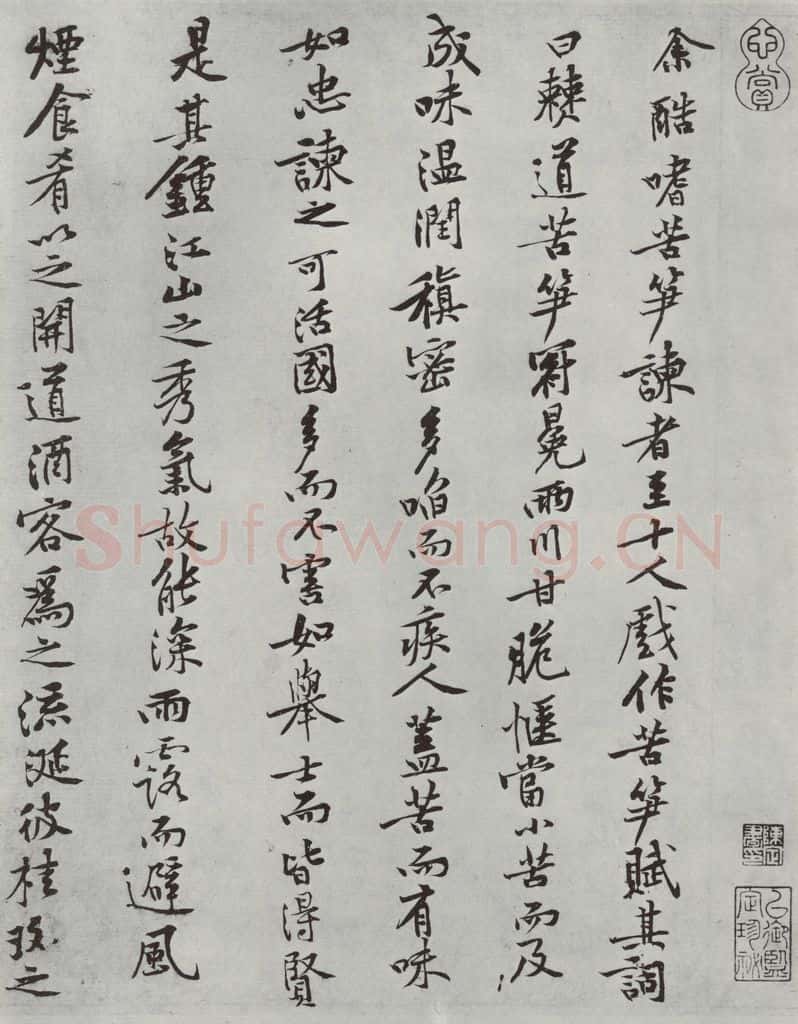 余酷嗜苦笋諫者至十人戲作苦笋賦其詞
曰僰道苦笋冠冕兩川甘脆愜當小苦而及
成味温潤稹密多啗而不疾人蓋苦而有味
如忠諫之可活國多而不害如舉士而皆得賢
是其鍾江山之秀氣故能深雨露而避風
煙食肴以之開道酒客爲之流涎彼桂玫之
Shufawang.CN